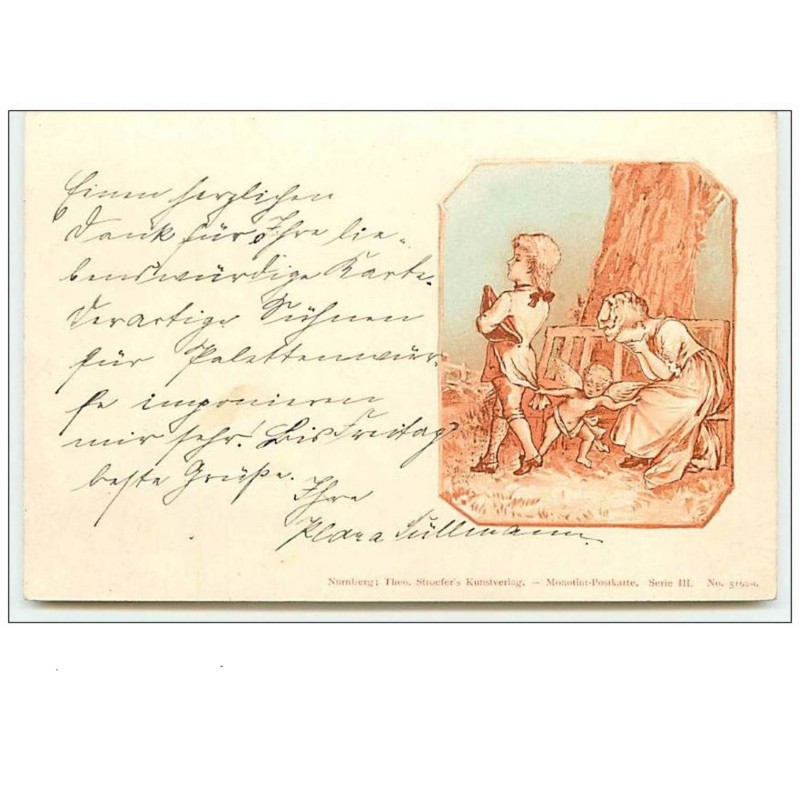 Einen herzlichen
Dank für Ihre lie-
benswürdige Karte.
Derartige Sühnen
für Palettenwür-
fe imponieren
mir sehr! Bis Freitag
beste Grüße.
Ihre
Klara Süllmann.
Nürnberg; Theo. Stroefer's Kunstverlag. — Monotint-Postkarte. Serie III. No.